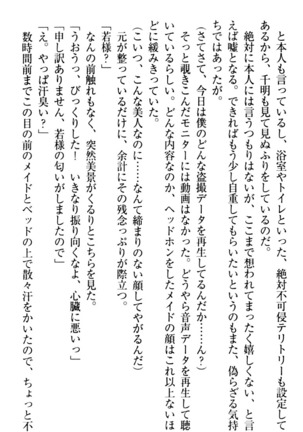 と本人も言っているし、浴室やトイレといった、絶対不可侵テリトリーも設定して
あるから、千明も見て見ぬふりをしているのだ。
絶対に本人には言うつもりはないが、ここまで想われてまったく嬉しくない、と言
えば嘘となる。できればもう少し自重してもらいたいというのもまた、偽らざる気持
ちではあったが。
(さてさて、今日は僕のどんな盗撮データを再生してるんだか……ん?)
そっと覗きこんだモニターには動画はなかった。どうやら音声データを再生して聴
いているらしい。どんな内容なのか、ヘッドホンをしたメイドの顔はこれ以上ないほ
どに緩みきっていた。
(こいつ、こんな美人なのに……なんて締まりのない顔してやがるんだ)
元が整っているだけに、余計にその残念っぷりが際立つ。
「若様?」
なんの前触れもなく、突然美景がくるりとこちらを見た。
「うおうっ、びっくりした! いきなり振り向くなよ、心臓に悪いっ」
「申し訳ありません、若様の匂いがしましたので」
「え。やっぱ汗臭い?」
数時間前までこの目の前のメイドとベッドの上で散々汗をかいたので、ちょっと不